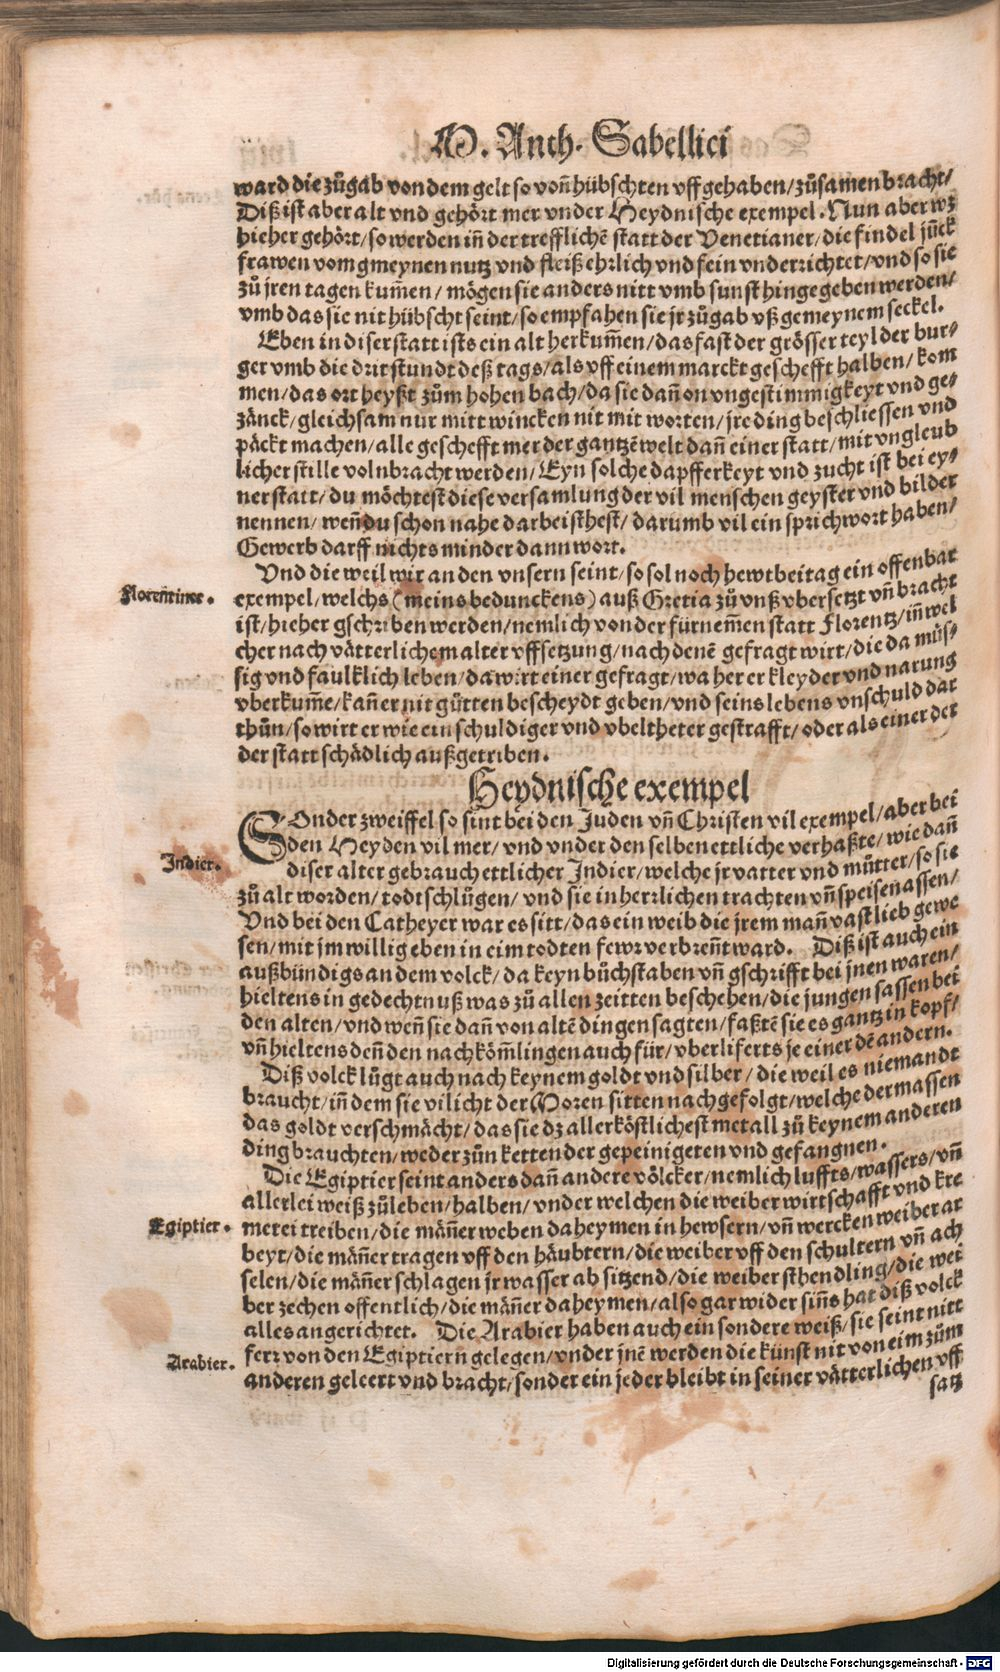 M. Anth. Sabellici
ward die zůgab von dem gelt so von̄ hübschten vff gehaben/zůsamen bracht/
Diß ist aber alt vnd gehört mer vnder Heydnische exempel. Nun aber wz
hieher gehört/so werden in̄ der trefflichē statt der Venetianer/die findel jun̄ck
frawen vom gmeynen nutz vnd fleiß ehrlich vnd fein vnderrichtet/vnd so sie
zů jren tagen kum̄en/ mögen sie anders nitt vmb sunst hingegeben werden/
vmb das sie nit hübscht seint/so empfahen sie jr zůgab vß gemeynem seckel.
Eben in diser statt ists ein alt herkum̄en/das fast der grösser teyl der bur⸗
ger vmb die drit stundt deß tags/als vff einem marckt geschefft halben/kom
men/das ort heyßt zům hohen bach/da sie dan̄ on vngestimmigkeyt vnd ge⸗
zänck/gleichsam nur mitt wincken nit mit worten/jre ding beschliessen vnd
päckt machen/alle geschefft mer der gantzē welt dan̄ einer statt/mit vngleub
licher stille volnbracht werden/Eyn solche dapfferkeyt vnd zucht ist bei ey⸗
ner statt/du möchtest diese versamlung der vil menschen geyster vnd bilder
nennen/wen̄ du schon nahe darbei sthest/darumb vil ein sprichwort haben/
Gewerb darff nichts minder dann wort.
Vnd die weil wir an den vnsern seint/so sol noch hewtbeitag ein offenbar
Floren̄tiner. exempel/welchs (meins bedunckens) auß Gretia zů vnß vbersetzt vn̄ bracht
ist/hieher gschriben werden/nemlich von der fürnem̄en statt Florentz/in̄ wel
cher nach vätterlichem alter vffsetzung/nach denē gefragt wirt/die da müs⸗
sig vnd faulklich leben/da wirt einer gefragt/wa her er kleyder vnd narung
vberkum̄e/kan̄ er nit gütten bescheydt geben/vnd seins lebens vnschuld dar
thün/so wirt er wie ein schuldiger vnd vbeltheter gestrafft/oder als einer der
der statt schädlich außgetriben.
Heydnische exempel
SOnder zweiffel so sint bei den Juden vn̄ Christen vil exempel/aber bei
den Heyden vil mer/vnd vnder den selben ettliche verhaßte/wie dan̄
Indier. diser alter gebrauch ettlicher Indier/welche jr vatter vnd mütter/so sie
zů alt worden/todt schlügen/vnd sie in herrlichen trachten vn̄ speisen assen/
Vnd bei den Catheyer war es sitt/das ein weib die jrem man̄ vast lieb gewe
sen/mit jm willig eben in eim todten fewr verbren̄t ward. Diß ist auch ein
außbündigs an dem volck/da keyn bůchstaben vn̄ gschrifft bei jnen waren/
hieltens in gedechtnuß was zů allen zeitten beschehen/die jungen sassen bei
den alten/vnd wen̄ sie dan̄ von altē dingen sagten/faßtē sie es gantz in kopf/
vn̄ hieltens den̄ den nachköm̄lingen auch für/vberliferts je einer dē andern.
Diß volck lůgt auch nach keynem goldt vnd silber/die weil es niemandt
braucht/in̄ dem sie vilicht der Moren sitten nachgefolgt/welche dermassen
das goldt verschmächt/das sie dz allerköstlichest metall zů keynem anderen
ding brauchten/weder zůn ketten der gepeinigeten vnd gefangnen.
Die Egiptier seint anders dan̄ andere völcker/nemlich luffts/wassers/vn̄
allerlei weiß zůleben/halben/vnder welchen die weiber wirtschafft vnd kre
Egiptier. merei treiben/die män̄er weben daheymen in hewsern/vn̄ wercken weiber ar
beyt/die män̄er tragen vff den häubtern/die weiber vff den schultern vn̄ ach
selen/die män̄er schlagen jr wasser ab sitzend/die weiber sthendling/die wei
ber zechen offentlich/die män̄er daheymen/also gar wider sin̄s hat diß volck
alles angerichtet. Die Arabier haben auch ein sondere weiß/sie seint nitt
Arabier. ferr von den Egiptiern̄ gelegen/vnder jnē werden die künst nit von eim zům
anderen geleert vnd bracht/sonder ein jeder bleibt in seiner vätterlichen vff
satz
Digitalisierung gefördert durch die Deutsche Forschungsgemeinschaft - DFG